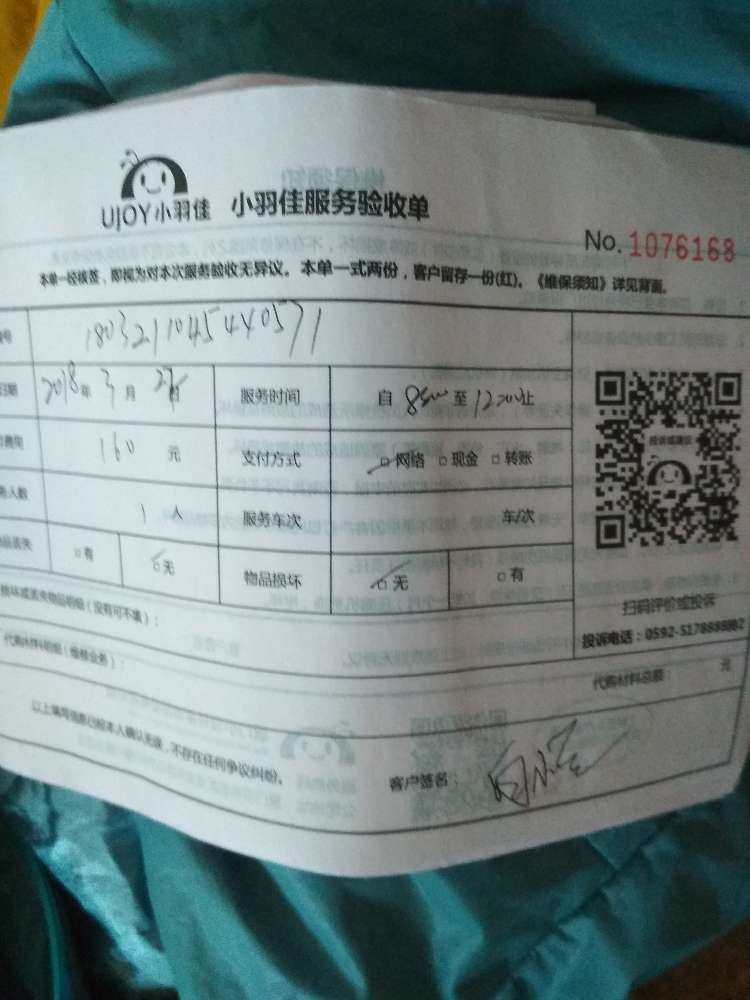 UJOY小羽佳 小羽佳服务验收单
No. 1076168
本单一经核签，即视为对本次服务验收无异议。本单一式两份，客户留存一份(红)。《维保须知》详见背面。
号 1803211045440571
日期 2018年 3月 27日 服务时间 自 8:00 至 12:00 止
费用 160 元 支付方式 □网络 □现金 □转账
人数 1 人 服务车次 车/次
品丢失 □有 □无 物品损坏 □无 □有
投诉或建议
扫码评价或投诉
投诉电话：0592-5178888
损坏或丢失物品明细（没有可不填）：
代购材料明细（维修业务）：
代购材料总额： 元
以上填写信息已经本人确认无误，不存在任何争议纠纷。
客户签名：